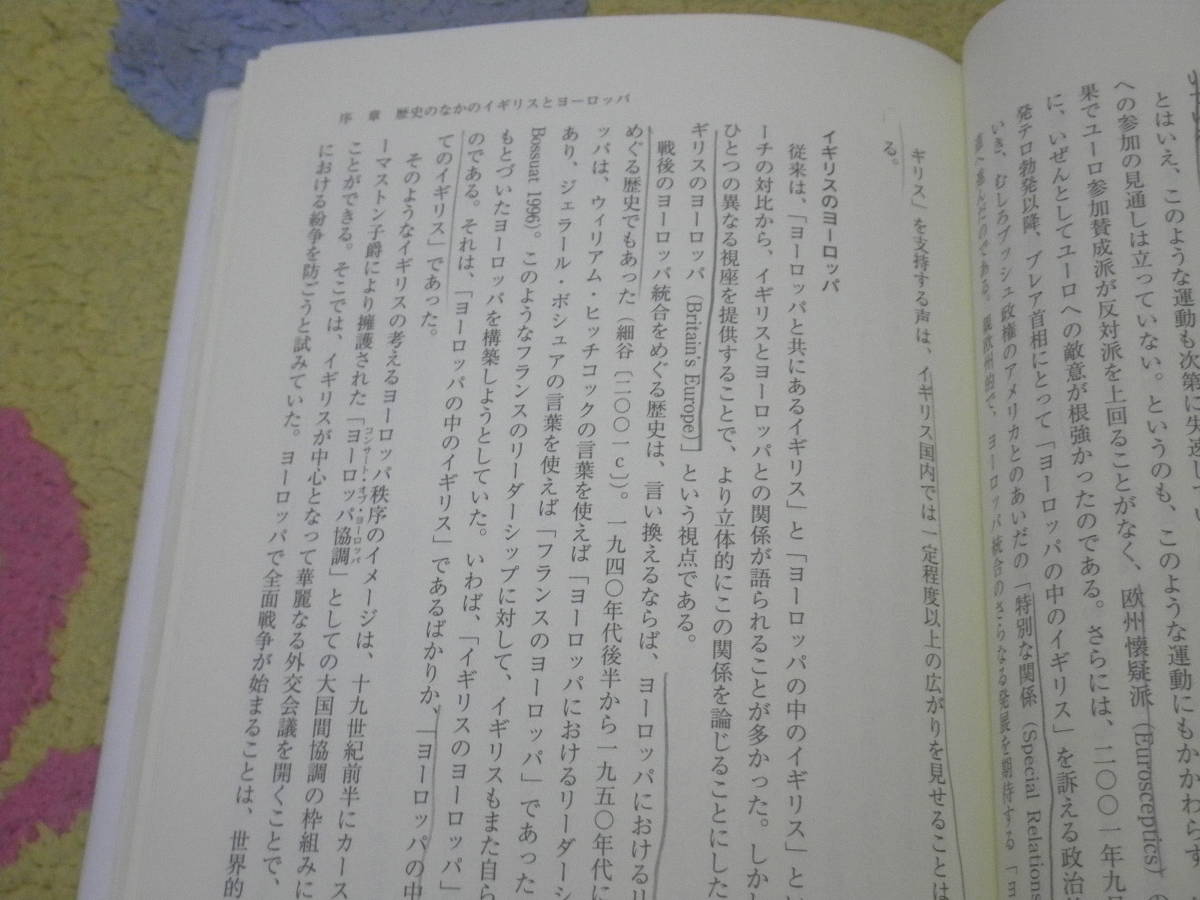 とはいえ、このような運動も次第に失速してい
への参加の見通しは立っていない。というのも、このような運動にもかかわらず
果でユーロ参加賛成派が反対派を上回ることがなく、欧州懐疑派（Eurosceptics）の
に、いぜんとしてユーロへの敵意が根強かったのである。さらには、二〇〇一年九月
発テロ勃発以降、ブレア首相にとって「ヨーロッパの中のイギリス」を訴える政治
いき、むしろブッシュ政権のアメリカとのあいだの「特別な関係（Special Relations
へ進んだのである。親欧州的で、ヨーロッパ統合のさらなる発展を期待する「ヨ
ギリス」を支持する声は、イギリス国内では一定程度以上の広がりを見せることは
る。
イギリスのヨーロッパ
従来は、「ヨーロッパと共にあるイギリス」と「ヨーロッパの中のイギリス」とい
ーチの対比から、イギリスとヨーロッパとの関係が語られることが多かった。しかし
ひとつの異なる視座を提供することで、より立体的にこの関係を論じることにした
ギリスのヨーロッパ（Britain's Europe）」という視点である。
戦後のヨーロッパ統合をめぐる歴史は、言い換えるならば、ヨーロッパにおけるリ
めぐる歴史でもあった（細谷〔二〇〇一c〕）。一九四〇年代後半から一九五〇年代に
ッパは、ウィリアム・ヒッチコックの言葉を使えば「ヨーロッパにおけるリーダーシ
あり、ジェラール・ボシュアの言葉を使えば「フランスのヨーロッパ」であった
Bossuat 1996）。このようなフランスのリーダーシップに対して、イギリスもまた自ら
もとづいたヨーロッパを構築しようとしていた。いわば、「イギリスのヨーロッパ」
のである。それは、「ヨーロッパの中のイギリス」であるばかりか、「ヨーロッパの中
てのイギリス」であった。
そのようなイギリスの考えるヨーロッパ秩序のイメージは、十九世紀前半にカース
ーマストン子爵により擁護された「ヨーロッパ協調」としての大国間協調の枠組みに
コンサート・オブ・ヨーロッパ
ことができる。そこでは、イギリスが中心となって華麗なる外交会議を開くことで、
における紛争を防ごうと試みていた。ヨーロッパで全面戦争が始まることは、世界的
序　章　歴史のなかのイギリスとヨーロッパ